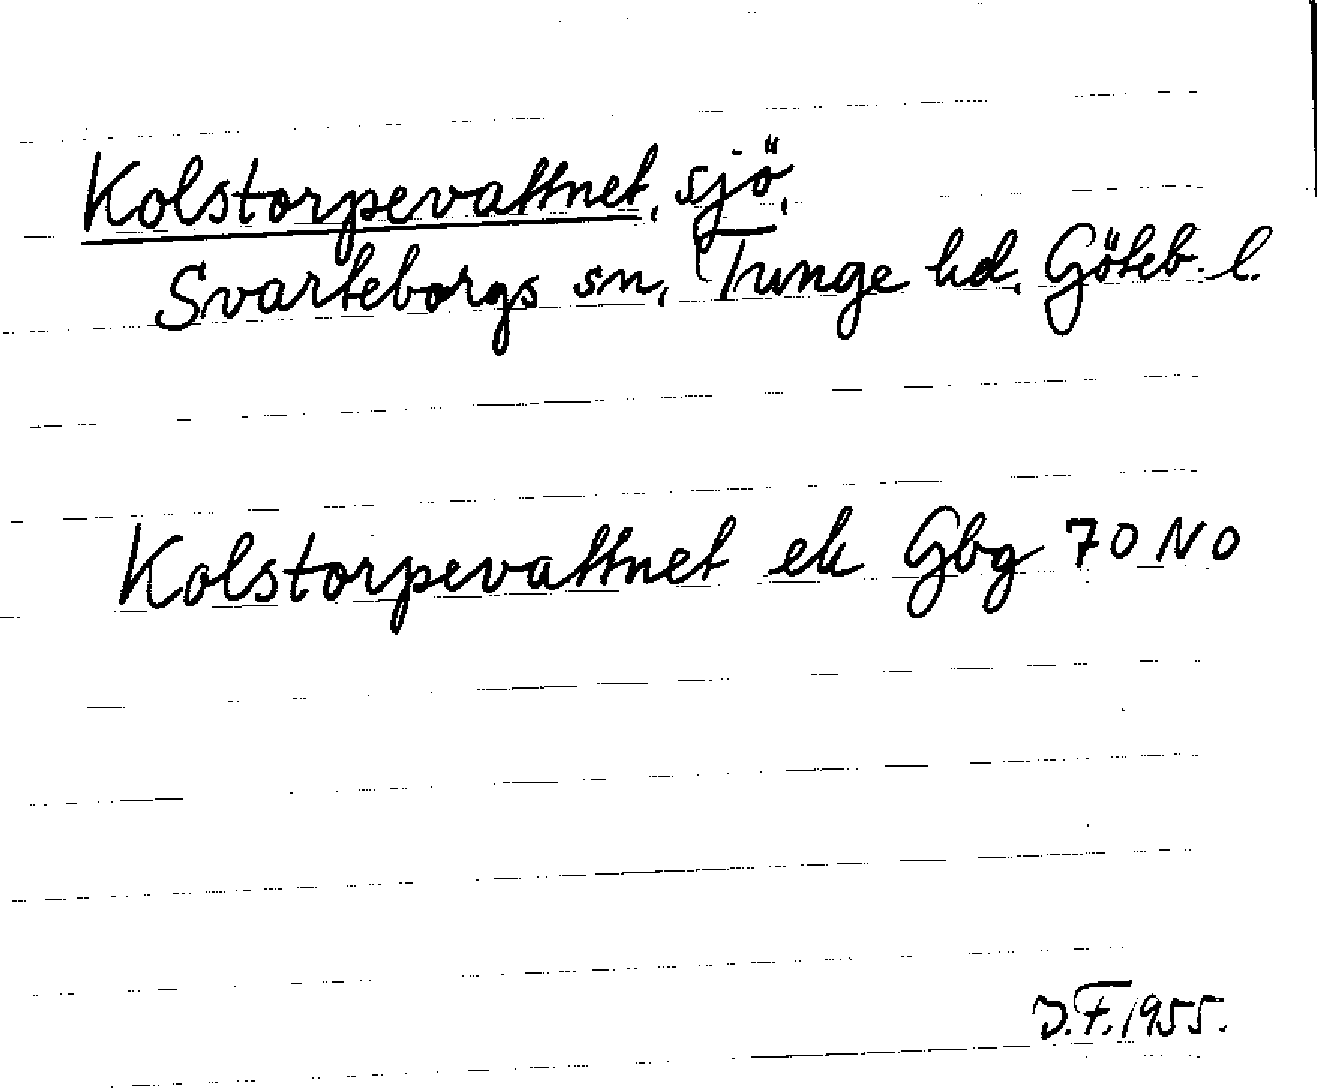 Kolstorpevattnet, sjö,
Svarteborgs sn, Tunge hd, Göteb. l.
Kolstorpevattnet ek Gbg 70 NO
J.F. 1955.